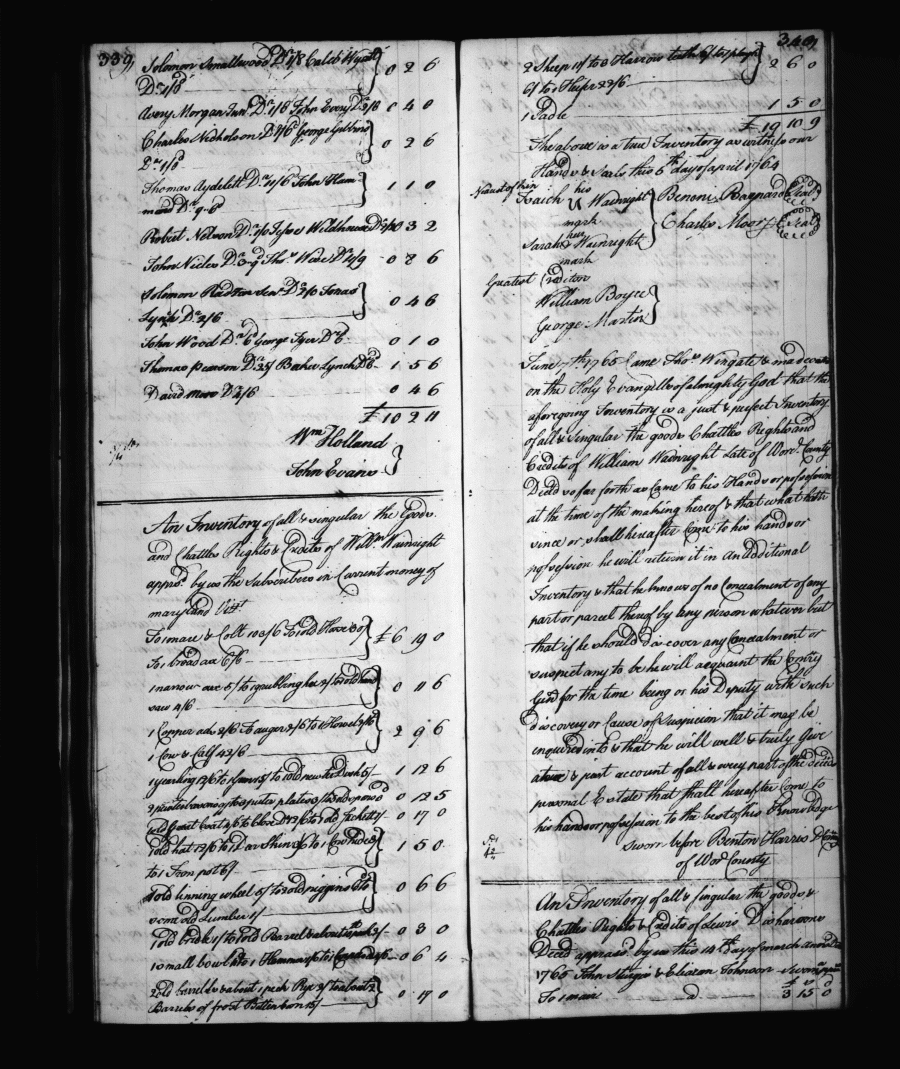 339
Solomon Smallwood Do 1/8 Caleb Wyatt
Do 1/8 0 2 6
Avery Morgan Junr Do 1/8 John Every Do 2/8 0 4 0
Charles Nicholson Do 2/6 George
Do 1/8 0 2 6
Thomas Aydelett Do 11/6 John Ham
mond Do 9.6 1 1 0
Robert Nelson Do 0 3 2
John Nicles Do Thos Do 4/9 0 8 6
Solomon Senr Do 2/0 Jonas
Lynch Do 2/6 0 4 6
John Wood Do 6 George Do 6 0 1 0
Thomas pearson Do 25/ Lynch Do 6 1 5 6
David Do 4/6 0 4 6
£ 10 2 11
Wm Holland
John Evans
An Inventory of all & singular the Goods
and Chattles Rights & Credits of Willm Wainright
apprsd by us the Subscribers in Current money of
maryland Vizt
To 1 mare & Colt 103/6 To 1 old
To 1 broad axe 6/6 £ 6 19 0
1 narrow axe 5/ to 1 grubling hoe 2/ to
saw 4/6 0 11 6
1 Copper adz 2/6 To auger 2/6 to 1 Howel 2/6
1 Cow & Calf 42/6 2 9 6
1 yearling 12/6 to to 1 old Dish 5/ 1 12 6
2 puter basons to 3 puter plates 3/ 0 12 5
1 old Great Coat to Glove to 1 old Jacket 5/ 0 17 0
1 old hat 12/6 to to 1
to 1 Iron pot 6/ 1 5 0
1 old linning wheel 5/ to 2 old piggins
some old Lumber 1/ 0 6 6
1 old bridle 1/ to 1 old Barrel & about 0 3 0
1 small bowl to 1 Hammer to 0 6 4
2 old barrels & about 1 peck Rye 2/ to about 2
Barrels of frost Bitten born 15/ 0 17 0
340
2 Sheep 11/ to 8 Harrow teeth 6/ to 1 plough
6/ to 1 22/6 2 6 0
1 Sadle 1 5 0
£ 19 10 9
The above is a true Inventory as witness our
Hands & Seals this 6th day of april 1764
Nearest of kin
his
U Wainright
mark
Benoni Baynard Seal
Charles Moor Seal
her
Sarah Wainright
mark
Greatest Creditors
William Boyce
George Martin
June 7th 1765 Came Thos Wingate & made oath
on the Holy Evangells of almighty God that the
aforegoing Inventory is a just & perfect Inventory
of all & Singular the goods Chattles Rights and
Credits of William Wainright late of Worr County
Decd so far forth as Came to his Hands or possession
at the time of the making hereof & that what hath
since or shall hereafter Come to his hands or
possession he will return it in an additional
Inventory & that he knows of no Concealment of any
part or parcel thereof by any person whatever but
that if he should discover any Concealment or
suspect any to be he will acquaint the Comry
Genl for the time being or his Deputy with such
discovery or Cause of Suspicion that it may be
enquired into & that he will well & truly Give
a true & just account of all & every part of the Deceds
personal Estate that shall hereafter Come to
his hands or possession to the best of his Knowledge
Sworn before Benton Harris D Comry
of Wor County
An Inventory of all & singular the goods &
Chattles Rights & Credits of Lewis Disharoone
Decd appraisd by us this 14th Day of march
1765 John Sturgis & Eliazon Johnson
To 1 mair d £ 3 15 0